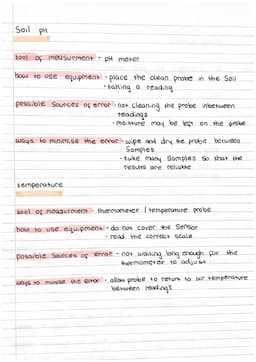 Soil pH
tool of measurment - pH meter
how to use equipment - place the clean probe in the soil
- taking a reading
possible sources of error - not cleaning the probe inbetween
readings
- moisture may be left on the probe
ways to minimise the error - wipe and dry the probe between
samples
- take many samples so that the
results are reliable
temperature
tool of measurment - thermometer / temperature probe
how to use equipment - do not cover the sensor
- read the correct scale
possible sources of error - not waiting long enough for the
thermometer to adjust
ways to minimise the error - allow probe to return to air temperature
between readings